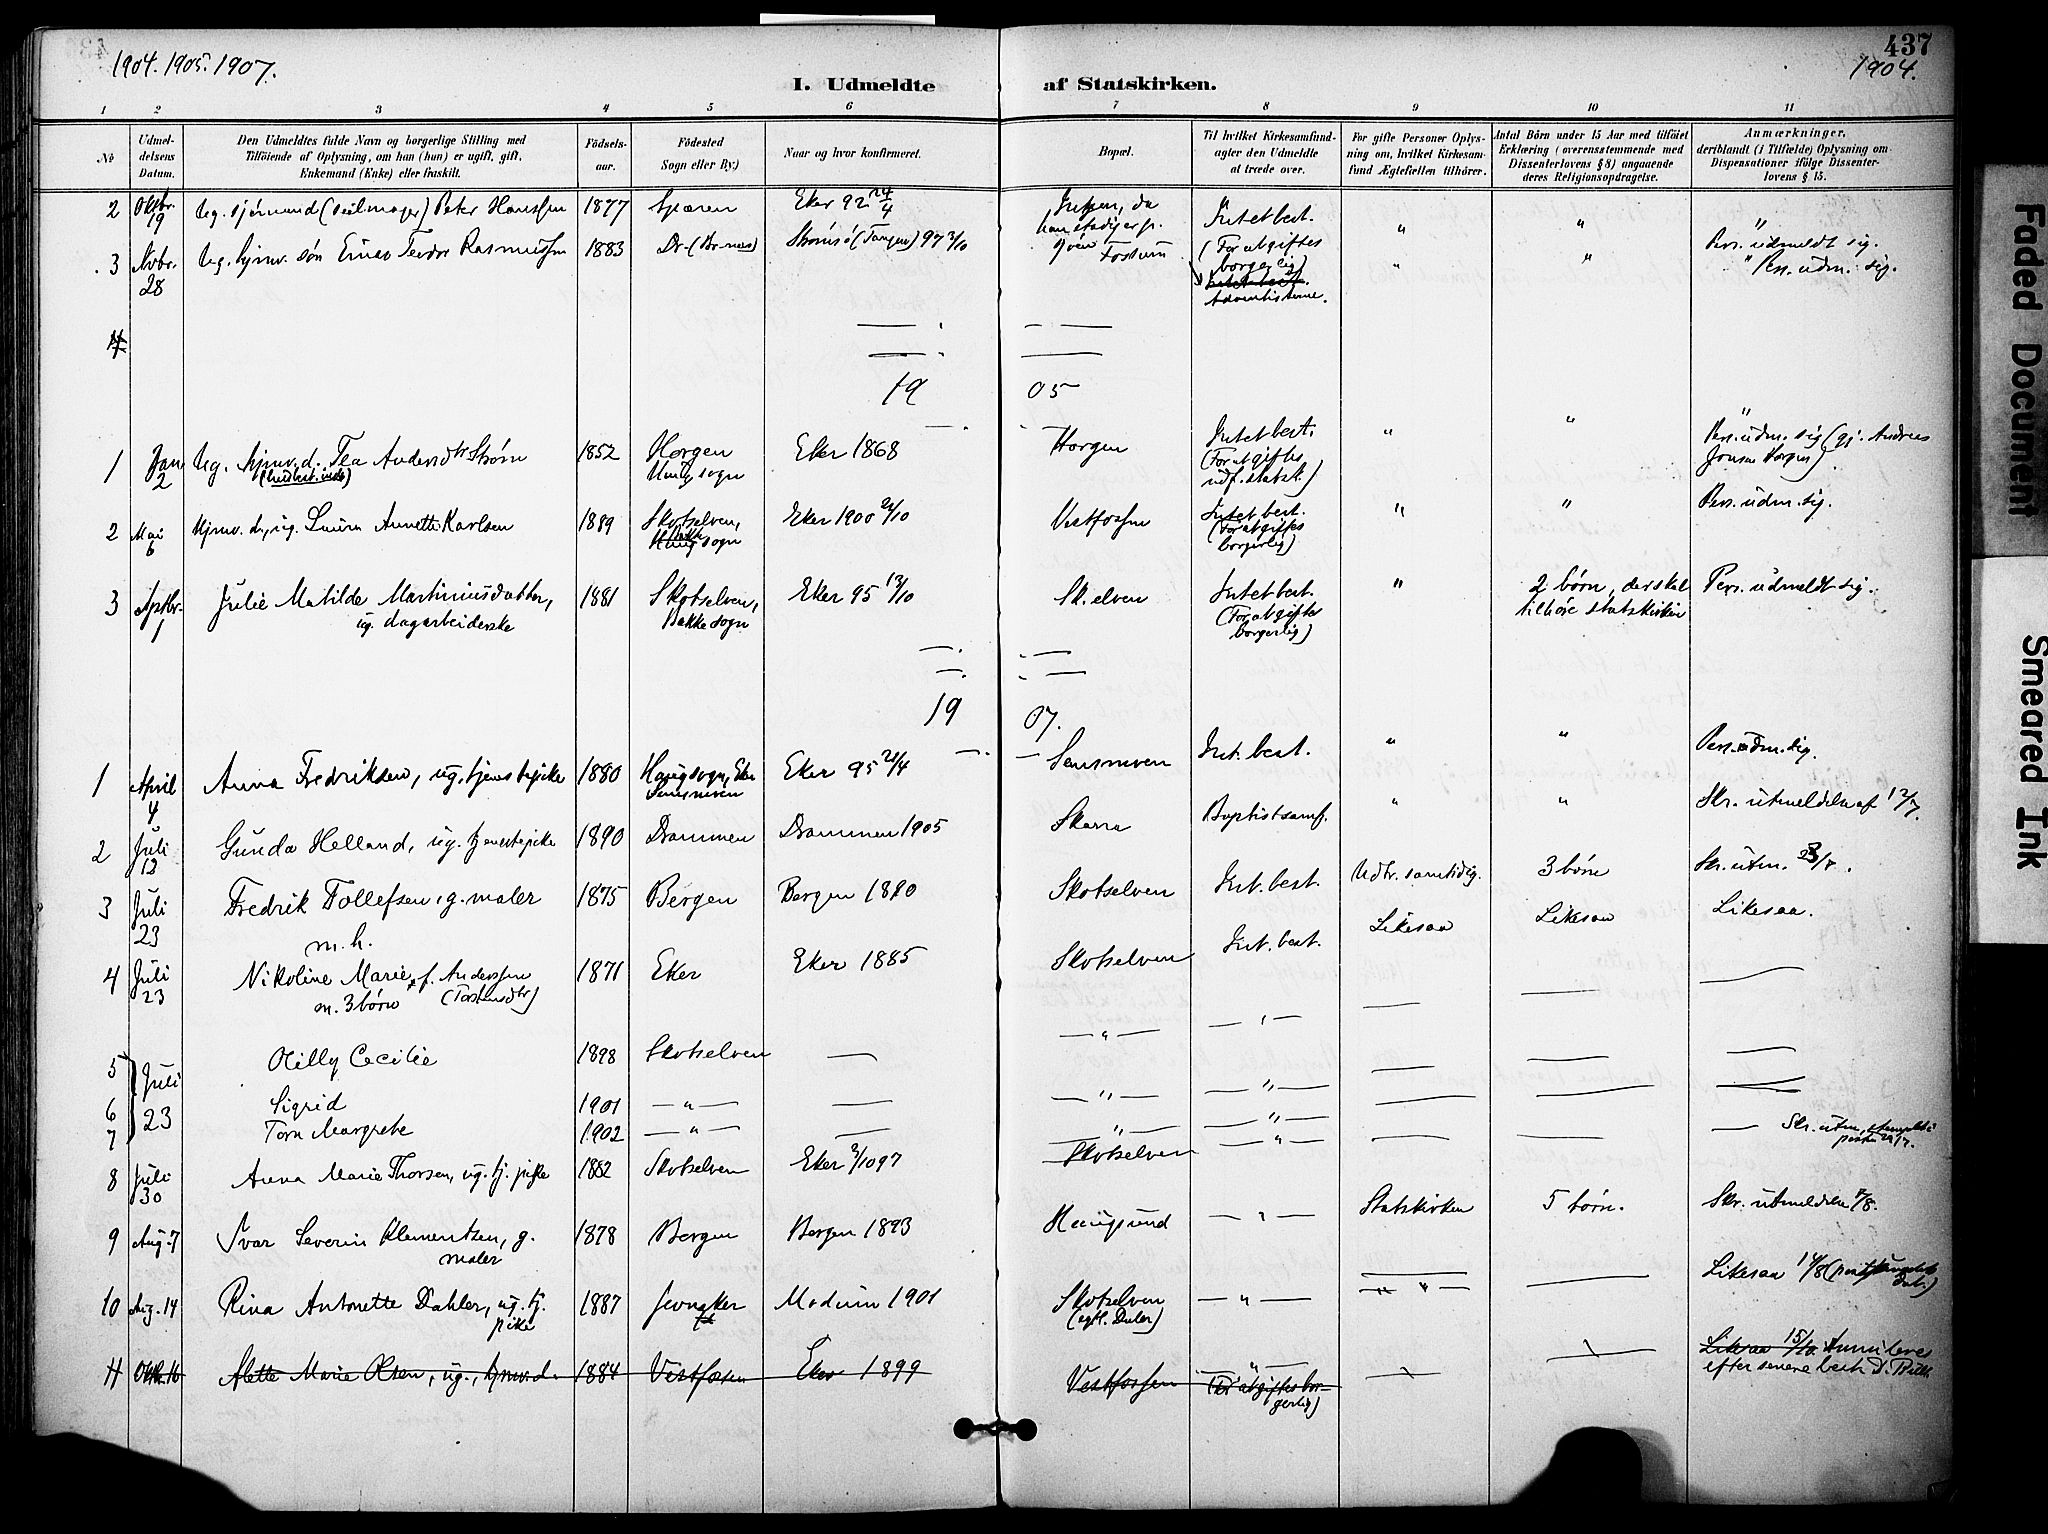 1904. 1905. 1907.
437
1904.
I. Udmeldte af Statskirken.
1 2 3 4 5 6 7 8 9 10 11
No
Udmeldelsens Datum.
Den Udmeldtes fulde Navn og borgerlige Stilling med
Tilføiende af Oplysning, om han (hun) er ugift, gift,
Enkemand (Enke) eller fraskilt.
Fødselsaar.
Fødested
Sogn eller By.)
Naar og hvor konfirmeret.
Bopæl.
Til hvilket Kirkesamfund-
agter den Udmeldte
at træde over.
For gifte Personer Oplys-
ning om, hvilket Kirkesam-
fund Ægtefællen tilhører.
Antal Børn under 15 Aar med tilføiet
Erklæring (overensstemmende med
Dissenterlovens § 8) angaaende
deres Religionsopdragelse.
Anmærkninger,
deriblandt (i Tilfælde) Oplysning om
Dispensationer ifølge Dissenter-
lovens § 15.
2 Oktbr. 19 Ug. (seilmager) Peter Hanssen 1877 Eker 92 24/4 Intet best. " " "
(For at giftes borgerlig) Pers. udmeldt sig.
3 Novbr. 28 Ug. søn Einar Teodor Rasmussen 1883 Strømsø (Tangen) 97 3/10 Fossum Intet best. Adventisterne. " " " Pers. udm. sig.
4
1905
1 Jan 2 Ug. hjmv. d. Tea Andersdtr Strøm 1852 Horgen Haug sogn Eker 1868 Horgen Intet best. (For at giftes udf. statsk.) " " " Pers. udm. sig (gj. Andreas Jonsen Horgen)
2 Mai 6 Hjmv. d., ug. Laura Annette Karlsen 1889 Skotselven, Bakke Haug sogn Eker 1900 2/10 Vestfossen Intet best. (For at giftes borgerlig) " " Pers. udm. sig.
3 Septbr. 1 Julie Matilde Martiniusdatter, ug. dagarbeiderske 1881 Skotselven, Bakke sogn Eker 95 13/10 Sk.elven Intet best. (For at giftes borgerlig) " 2 børn, der skal tilhøre statskirken Pers. udmeldt sig.
1907.
1 April 4 Anna Fredriksen, ug. tjenestepike 1880 Haug sogn, Eker Eker 95 21/4 Int. best. " " Pers. udm. sig.
2 Juli 12 Gunda Helland, ug. tjenestepike 1890 Drammen Drammen 1905 Skarra Baptistsamf. " " Skr. utmeldelse af 12/7.
3 Juli 23 Fredrik Tollefsen, g. maler 1875 Bergen Bergen 1890 Skotselven Int. best. Udtr. samtidig. 3 børn Skr. utm. 23/7.
m. h.
4 Juli 23 Nikoline Marie, f. Anderssen (Torstensdtr) m. 3 børn 1871 Eker Eker 1885 Skotselven Int. best. Likesaa Likesaa Likesaa.
5 Juli 23 Olilly Cecilie 1898 Skotselven — — " — — " —
6 Sigrid 1901 — " — — — " — — " —
7 Tora Margrete 1902 — " — — — " — — " —
8 Juli 30 Anna Marie Thorsen, ug. tj. pike 1882 Skotselven Eker 3/10 97 Skotselven — " — — — — Skr. utm.
9 Aug. 7 Ivar Severin Klementsen, g. maler 1878 Bergen Bergen 1893 Haugsund — " — Statskirken 5 børn. Skr. utmeldelse 7/8.
10 Aug. 14 Rina Antonette Dahler, ug. tj. pike 1887 Modum 1901 Skotselven — " — — " — — Likesaa 14/8
11 Oktb. 16 Alette Marie Olsen, ug., hjmv. d. 1884 Vestfossen Eker 1899 Vestfossen — " — (For at giftes borgerlig) — — Likesaa 15/10. Annulleres efter senere besk.
Faded Document
Smeared Ink